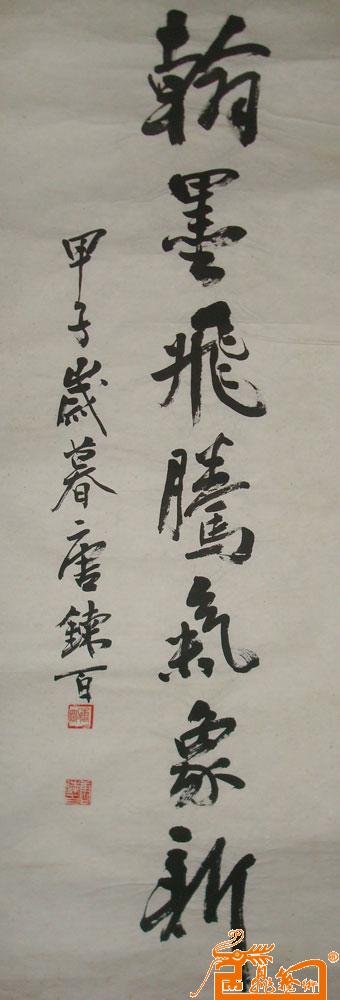 翰墨飛騰氣象新
甲子歲暮唐鍊百